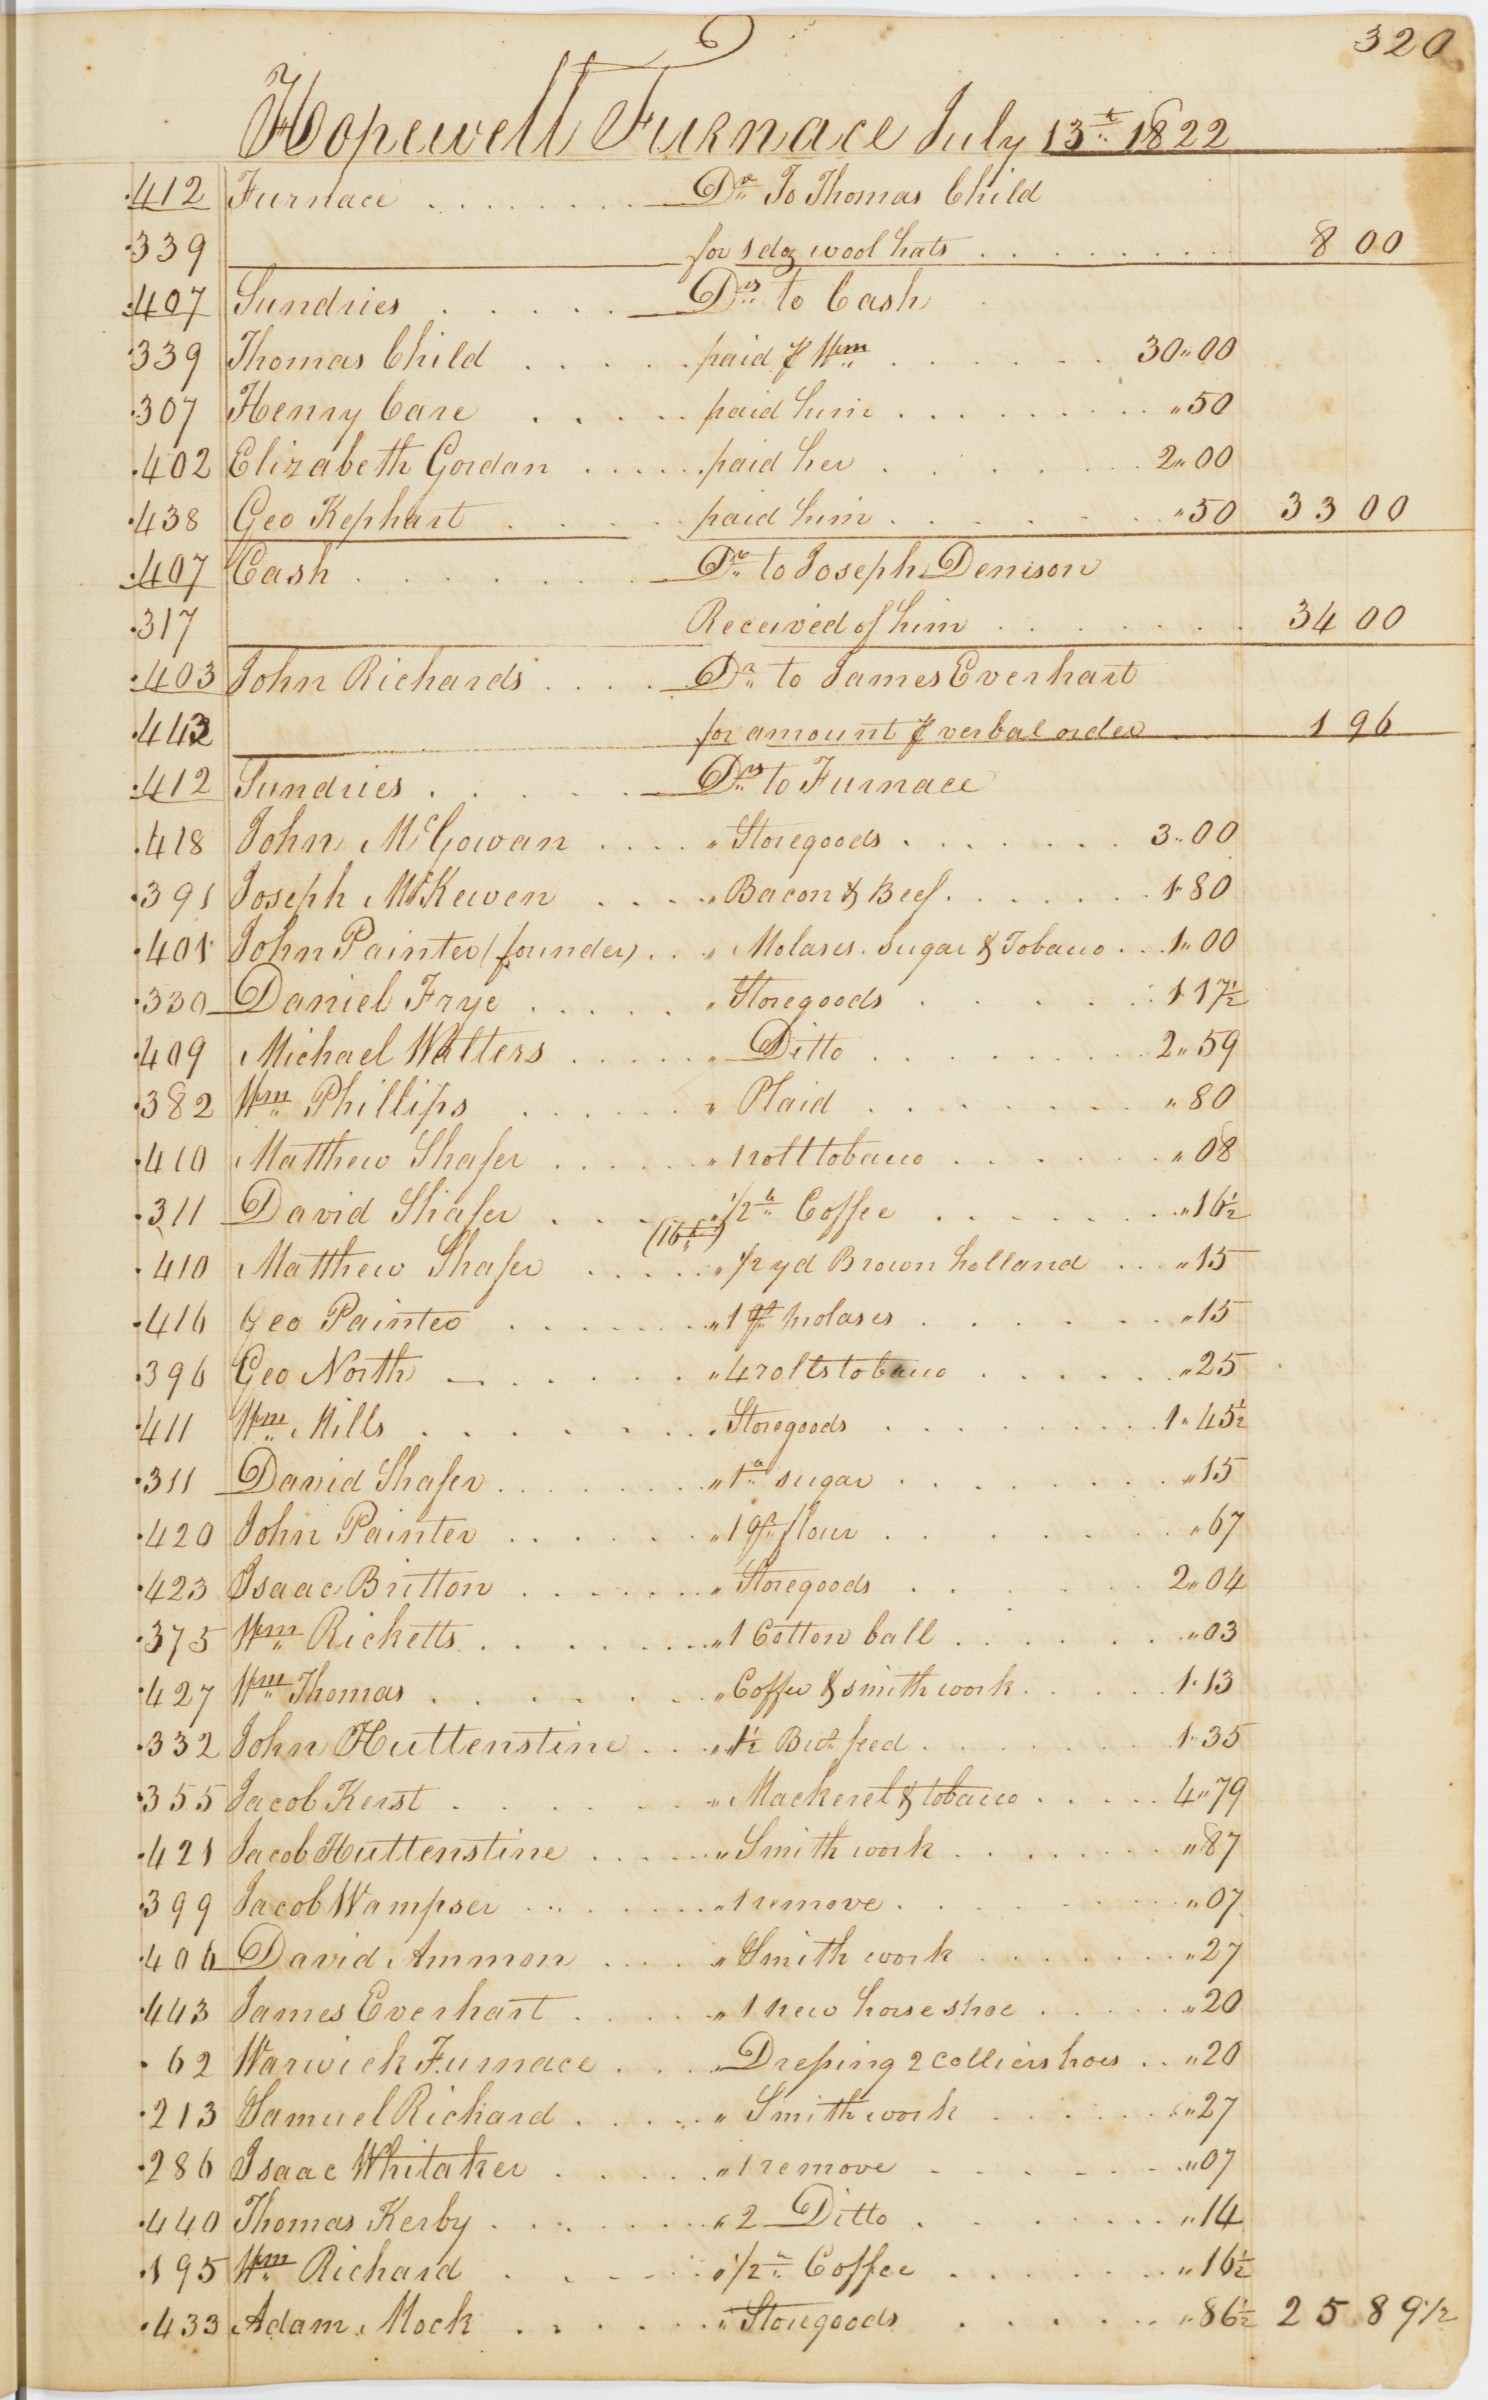 320
Hopewell Furnace July 13th 1822
412 Furnace . . . . . . . . Dr To Thomas Child
339 for 1 doz wool hats . . . . . . . . 8 00
407 Sundries . . . . . Drs to Cash
339 Thomas Child . . . . . paid ⅌ Wm . . . . . . 30"00
307 Henry Care . . . . . paid him . . . . . . . . . "50
402 Elizabeth Gordan . . . . . paid her . . . . . . . 2"00
438 Geo Kephart . . . . . paid him . . . . . . . "50 33 00
407 Cash . . . . . . . Dr to Joseph Denison
317 Received of him . . . . . . . . 34 00
403 John Richards . . . . Dr to James Everhart
443 for amount ⅌ verbal order 1 96
412 Sundries . . . . . Drs to Furnace
418 John McGowan . . . . " Storegoods . . . . . . . 3"00
391 Joseph McKewen . . . . " Bacon & Beef . . . . . . . 1"80
401 John Painter (founder) . . " Molases. Sugar & Tobacco . . 1"00
330 Daniel Frye . . . . . " Storegoods . . . . . 1 17½
409 Michael Walters . . . . . " Ditto . . . . . . . . . 2"59
382 Wm Phillips . . . . . . " Plaid . . . . . . . . "80
410 Matthew Shafer . . . . . . " 1 roll tobacco . . . . . . "08
311 David Shafer . . . . " 1/2 lb Coffee . . . . . . . "16½
(16th)
410 Matthew Shafer . . . . . " 1/2 yd Brown holland . . "15
416 Geo Painter . . . . . . " 1 qt molases . . . . . . "15
396 Geo North . . . . . . " 4 rolls tobacco . . . . . . "25
411 Wm Mills . . . . . . . " Storegoods . . . . . . . . 1"45½
311 David Shafer . . . . . . . " 1 lb sugar . . . . . . . "15
420 John Painter . . . . . . " 1 qr flour . . . . . . . "67
423 Isaac Britton . . . . . . " Storegoods . . . . . 2"04
375 Wm Ricketts . . . . . . . " 1 Cotton ball . . . . . . "03
427 Wm Thomas . . . . . . . " Coffee & smith work . . . . 1"13
332 John Huttenstine . . . " 1½ But feed . . . . . . . . 1"35
355 Jacob Kerst . . . . . . " Mackerel & tobacco . . . . . 4"79
421 Jacob Huttenstine . . . . . " Smith work . . . . . . . "87
399 Jacob Wampser . . . . . . " 1 remove . . . . . . . "07
406 David Ammon . . . . " Smith work . . . . . . . "27
443 James Everhart . . . . . " 1 new horse shoe . . . . . "20
62 Warwick Furnace . . . . " Dressing 2 Colliers hoes . . "20
213 Samuel Richard . . . . . " Smith work . . . . . . "27
286 Isaac Whitaker . . . . . " 1 remove . . . . . . "07
440 Thomas Kerby . . . . . . . " 2 Ditto . . . . . . . "14
195 Wm Richard . . . . . " 1/2 lb Coffee . . . . . . "16½
433 Adam Mock . . . . . . " Storegoods . . . . . "86½ 25 89½